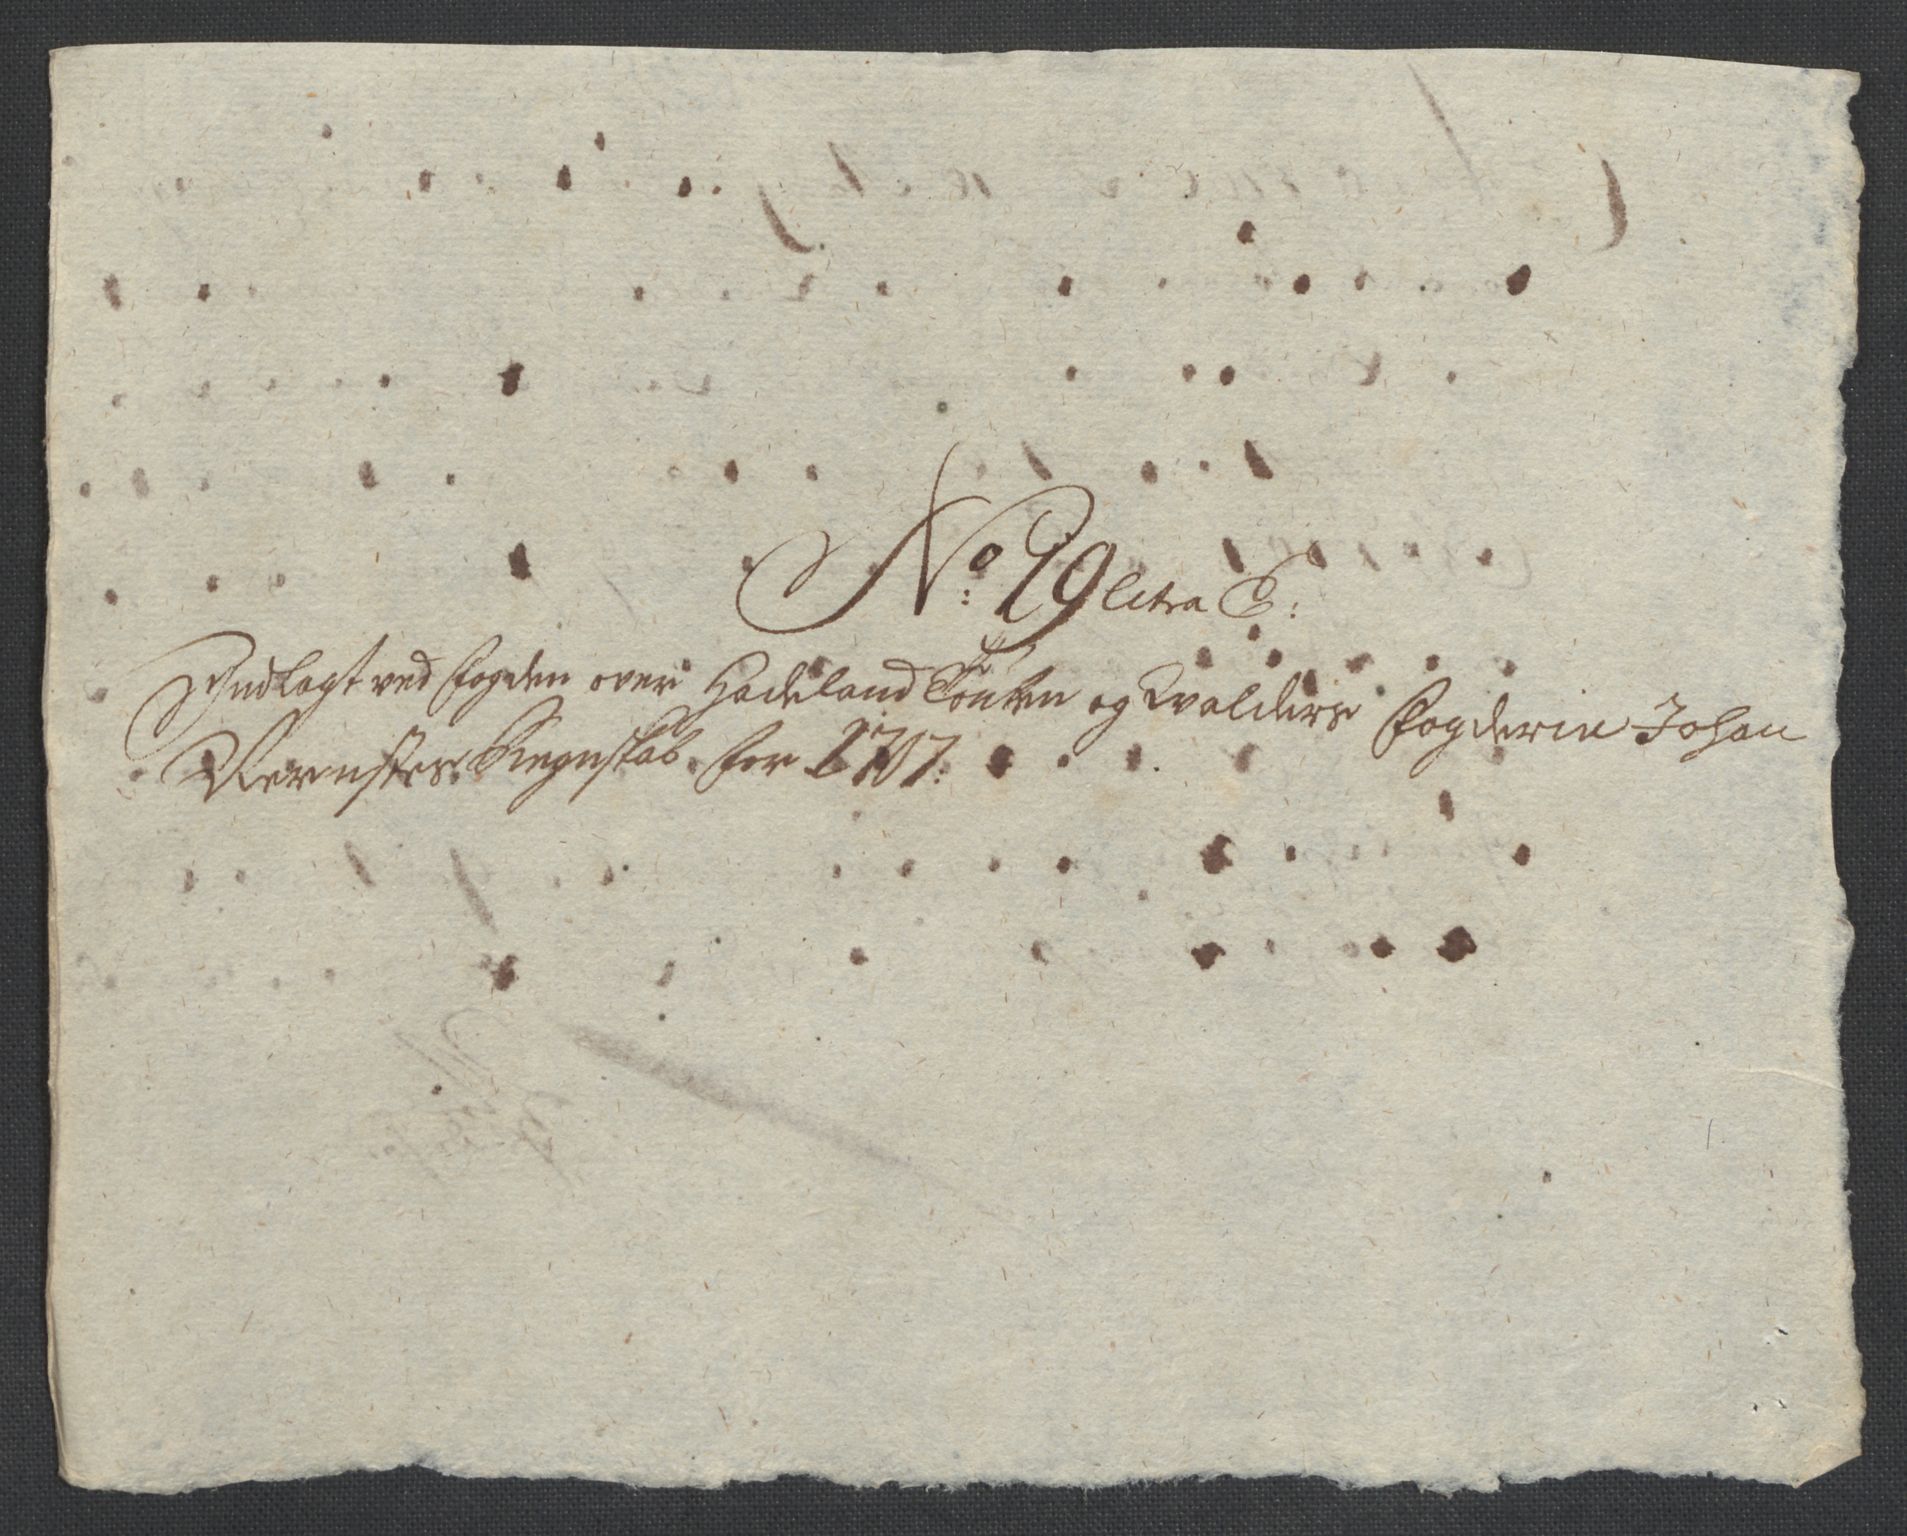 No: 19 litra E:
Indlagt ved fogden over Hadeland Toten og Walders Fogderie Johan
Rerenstes Regnskab for 1707: